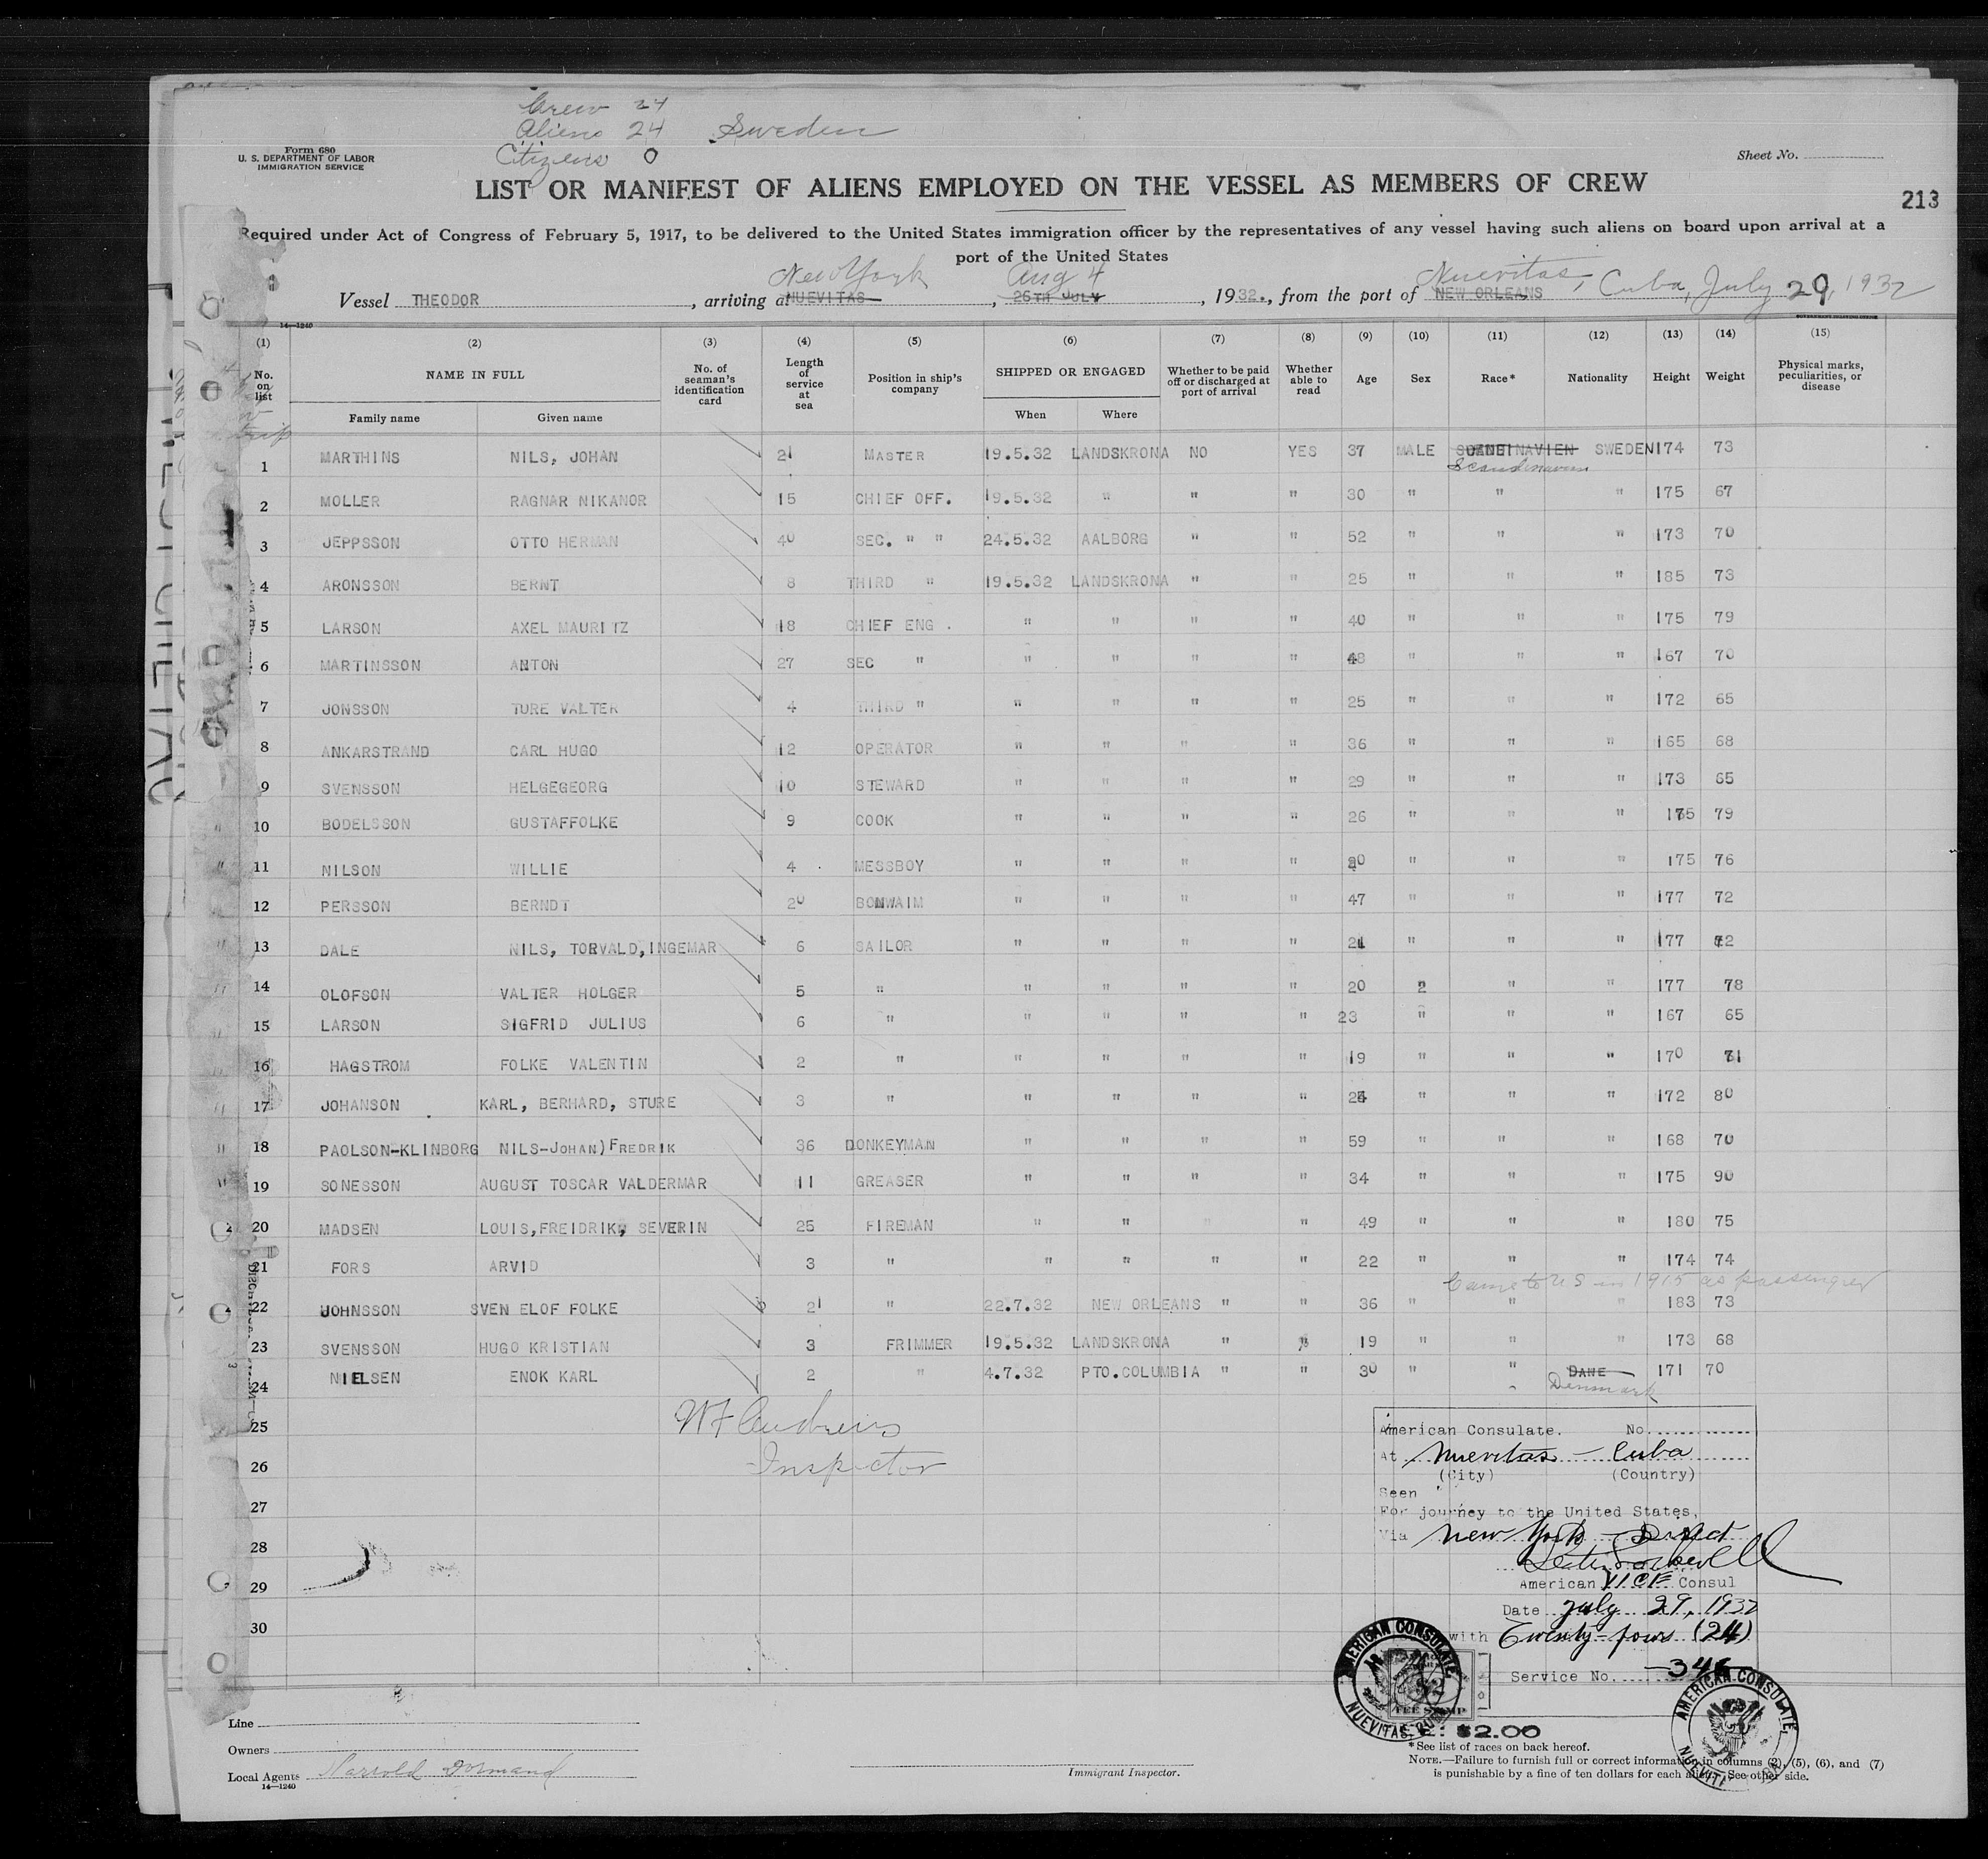 Crew 24
Aliens 24 Sweden
Citizens 0
Form 680
U. S. DEPARTMENT OF LABOR
IMMIGRATION SERVICE
Sheet No.
LIST OR MANIFEST OF ALIENS EMPLOYED ON THE VESSEL AS MEMBERS OF CREW
213
Required under Act of Congress of February 5, 1917, to be delivered to the United States immigration officer by the representatives of any vessel having such aliens on board upon arrival at a
port of the United States
New York Aug 4 Nuevitas, Cuba, July 29, 1932
Vessel THEODOR, arriving at NUEVITAS, 26TH JULY, 1932., from the port of NEW ORLEANS
14—1240
(1) (2) (3) (4) (5) (6) (7) (8) (9) (10) (11) (12) (13) (14) (15)
No. on list NAME IN FULL No. of seaman's identification card Length of service at sea Position in ship's company SHIPPED OR ENGAGED Whether to be paid off or discharged at port of arrival Whether able to read Age Sex Race* Nationality Height Weight Physical marks, peculiarities, or disease
Family name Given name When Where
1 MARTHINS NILS, JOHAN 21 MASTER 19.5.32 LANDSKRONA NO YES 37 MALE SWEDEN 174 73
Scandinavien
2 MOLLER RAGNAR NIKANOR 15 CHIEF OFF. 19.5.32 " " " 30 " " " 175 67
3 JEPPSSON OTTO HERMAN 40 SEC. " " 24.5.32 AALBORG " " 52 " " " 173 70
4 ARONSSON BERNT 8 THIRD " 19.5.32 LANDSKRONA " " 25 " " " 185 73
5 LARSON AXEL MAURITZ 18 CHIEF ENG . " " " " 40 " " " 175 79
6 MARTINSSON ANTON 27 SEC " " " " " 48 " " " 167 70
7 JONSSON TURE VALTER 4 THIRD " " " " " 25 " " " 172 65
8 ANKARSTRAND CARL HUGO 12 OPERATOR " " " " 36 " " " 165 68
9 SVENSSON HELGEGEORG 10 STEWARD " " " " 29 " " " 173 65
10 BODELSSON GUSTAFFOLKE 9 COOK " " " " 26 " " " 175 79
11 NILSON WILLIE 4 MESSBOY " " " " " " " 175 76
12 PERSSON BERNDT 20 BONWAIM " " " " 47 " " " 177 72
13 DALE NILS, TORVALD, INGEMAR 6 SAILOR " " " " 21 " " " 177
14 OLOFSON VALTER HOLGER 5 " " " " " 20 2 " " 177 78
15 LARSON SIGFRID JULIUS 6 " " " " " 23 " " " 167 65
16 HAGSTROM FOLKE VALENTIN 2 " " " " " 19 " " " 170 71
17 JOHANSON KARL, BERHARD, STURE 3 " " " " " " " " 172 80
18 PAOLSON-KLINBORG NILS-JOHAN)FREDRIK 36 DONKEYMAN " " " " 59 " " " 168 70
19 SONESSON AUGUST TOSCAR VALDERMAR 11 GREASER " " " " 34 " " " 175 90
20 MADSEN LOUIS,FREIDRIK, SEVERIN 25 FIREMAN " " " " 49 " " " 180 75
21 FORS ARVID 3 " " " " " 22 " " " 174 74
Came to US in 1915 as passenger
22 JOHNSSON SVEN ELOF FOLKE 21 " 22.7.32 NEW ORLEANS " " 36 " " " 183 73
23 SVENSSON HUGO KRISTIAN 3 FRIMMER 19.5.32 LANDSKRONA " " 19 " " " 173 68
24 NIELSEN ENOK KARL 2 " 4.7.32 PTO.COLUMBIA " " 30 " " DANE 171 70
Denmark
25
26
27
28
29
30
W F Andrews
Inspector
American Consulate. No.
At Nuevitas - Cuba
(City) (Country)
Seen
For journey to the United States,
Via New York - Direct
American VICE Consul
Date July 29, 1932
with Twenty-four (24)
Service No. 346
AMERICAN CONSULATE
NUEVITAS, CUBA
FEE STAMP
$2.00
AMERICAN CONSULATE
Line
Owners
Local Agents
14—1240
Immigrant Inspector.
*See list of races on back hereof.
NOTE.—Failure to furnish full or correct information in columns (2), (5), (6), and (7)
is punishable by a fine of ten dollars for each alien. See other side.